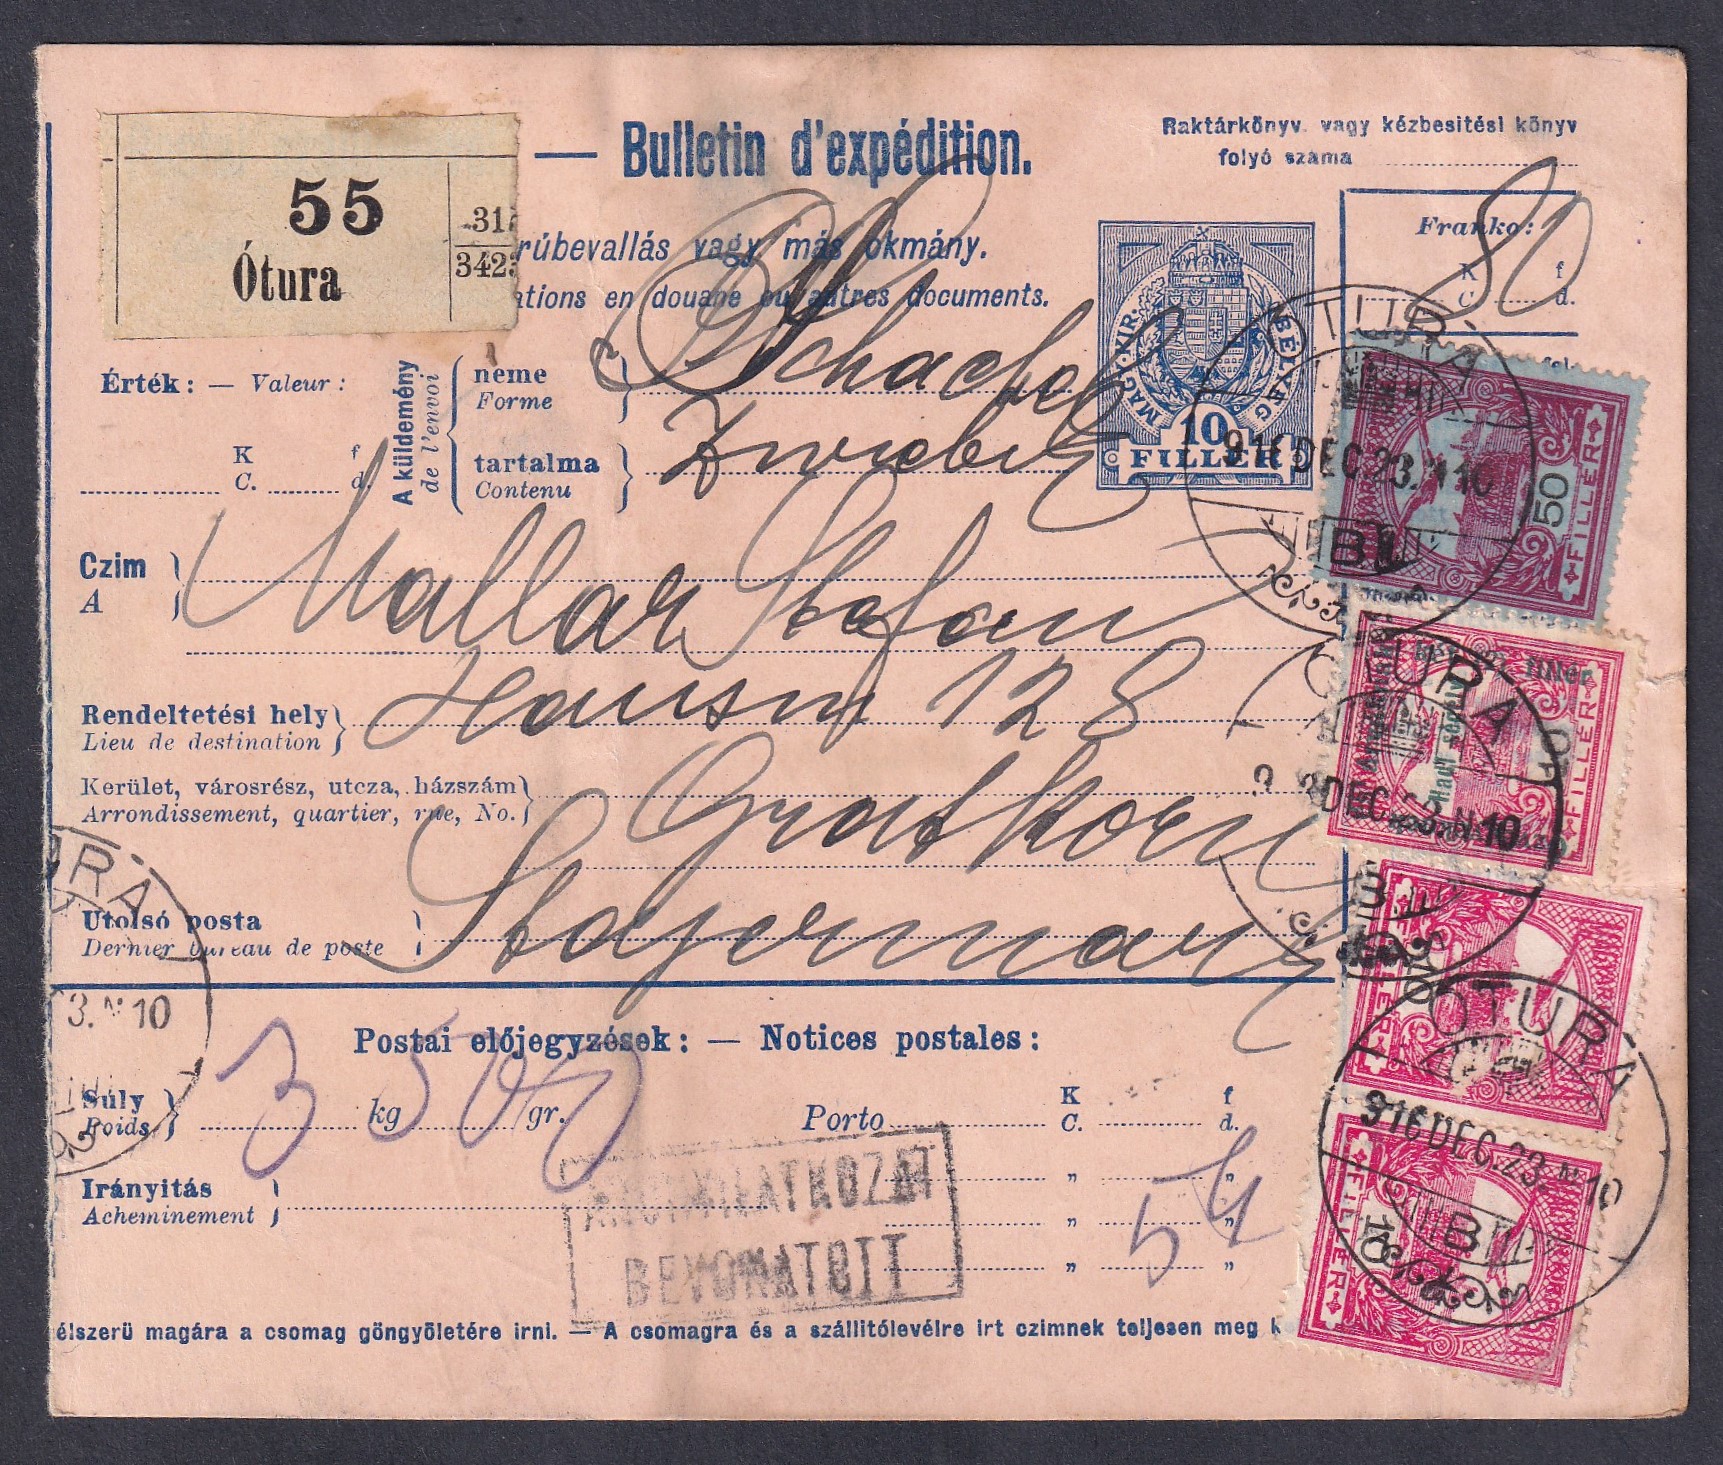 — Bulletin d'expédition.
Raktárkönyv vagy kézbesitési könyv
folyó száma
55
Ótura
317
3423
Franko:
K f
C. d.
80
rúbevallás vagy más okmány.
ations en douane ou autres documents.
MAGY. KIR. BÉLYEG
10
FILLÉR
Érték: — Valeur:
K f
C. d.
A küldemény
de l'envoi
neme
Forme
Schachtel
tartalma
Contenu
Zwiebel
Czim
A
Mallar Stefan
Rendeltetési hely
Lieu de destination
Hausnr 128
Kerület, városrész, utcza, házszám
Arrondissement, quartier, rue, No.
Gratkorn
Utolsó posta
Dernier bureau de poste
Steyermark
50 FILLÉR
ÓTURA
916 DEC. 23. N 10
B
FILLÉR
ÓTURA
DEC. 23. N 10
B
FILLÉR
ÓTURA
916 DEC. 23. N 10
B
10 FILLÉR
URA
3. N 10
Postai előjegyzések: — Notices postales:
Súly
Poids
3 kg 500 gr.
Porto
K f
C. d.
Irányitás
Acheminement
54
ÁRUNYILATKOZAT
BEVONATOTT
élszerü magára a csomag göngyöletére irni. — A csomagra és a szállitólevélre irt czimnek teljesen meg k